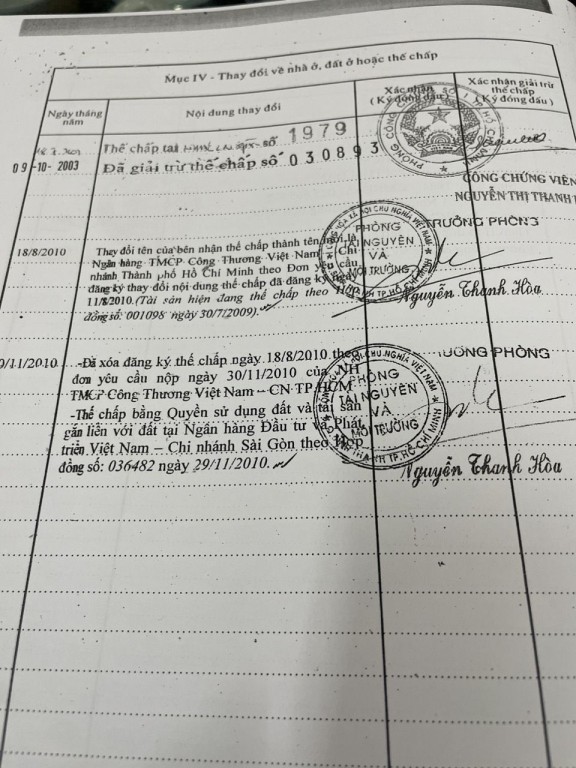 Mục IV - Thay đổi về nhà ở, đất ở hoặc thế chấp
Ngày tháng năm
Nội dung thay đổi
Xác nhận
(Ký đóng dấu)
Xác nhận giải trừ
thế chấp
(Ký đóng dấu)
Thế chấp tại số 1979
09-10-2003 Đã giải trừ thế chấp số 030893
CÔNG CHỨNG VIÊN
NGUYỄN THỊ THANH
18/8/2010
Thay đổi tên của bên nhận thế chấp thành tên mới là
Ngân hàng TMCP Công Thương Việt Nam – Chi
nhánh Thành phố Hồ Chí Minh theo Đơn yêu cầu
đăng ký thay đổi nội dung thế chấp đã đăng ký ngày
11/8/2010. (Tài sản hiện đang thế chấp theo Hợp
đồng số: 001098 ngày 30/7/2009).
TRƯỞNG PHÒNG
PHÒNG
TÀI NGUYÊN
VÀ
MÔI TRƯỜNG
Nguyễn Thanh Hòa
0/11/2010
-Đã xóa đăng ký thế chấp ngày 18/8/2010 theo
đơn yêu cầu nộp ngày 30/11/2010 của NH
TMCP Công Thương Việt Nam – CN TP.HCM
-Thế chấp bằng Quyền sử dụng đất và tài sản
gắn liền với đất tại Ngân hàng Đầu tư và Phát
triển Việt Nam – Chi nhánh Sài Gòn theo Hợp
đồng số: 036482 ngày 29/11/2010.
ƯỞNG PHÒNG
PHÒNG
TÀI NGUYÊN
VÀ
MÔI TRƯỜNG
Nguyễn Thanh Hòa